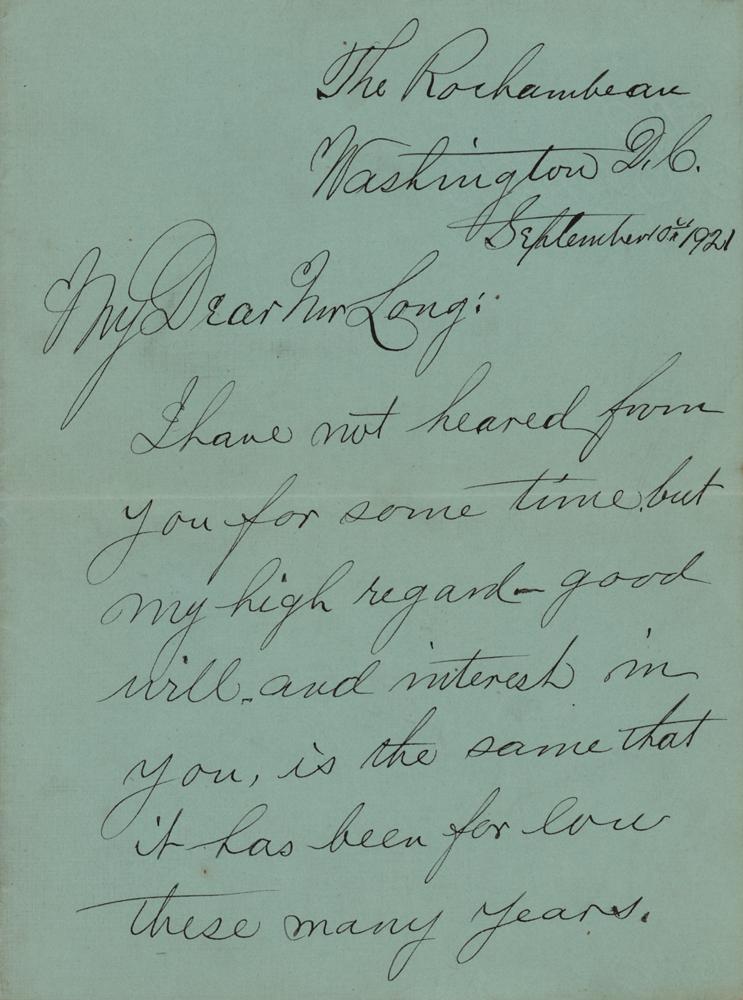 The Rochambeau
Washington D.C.
September 1921
My Dear Mr Long:
I have not heared from
you for some time, but
my high regard - good
will, and interest in
you, is the same that
it has been for low
these many years.